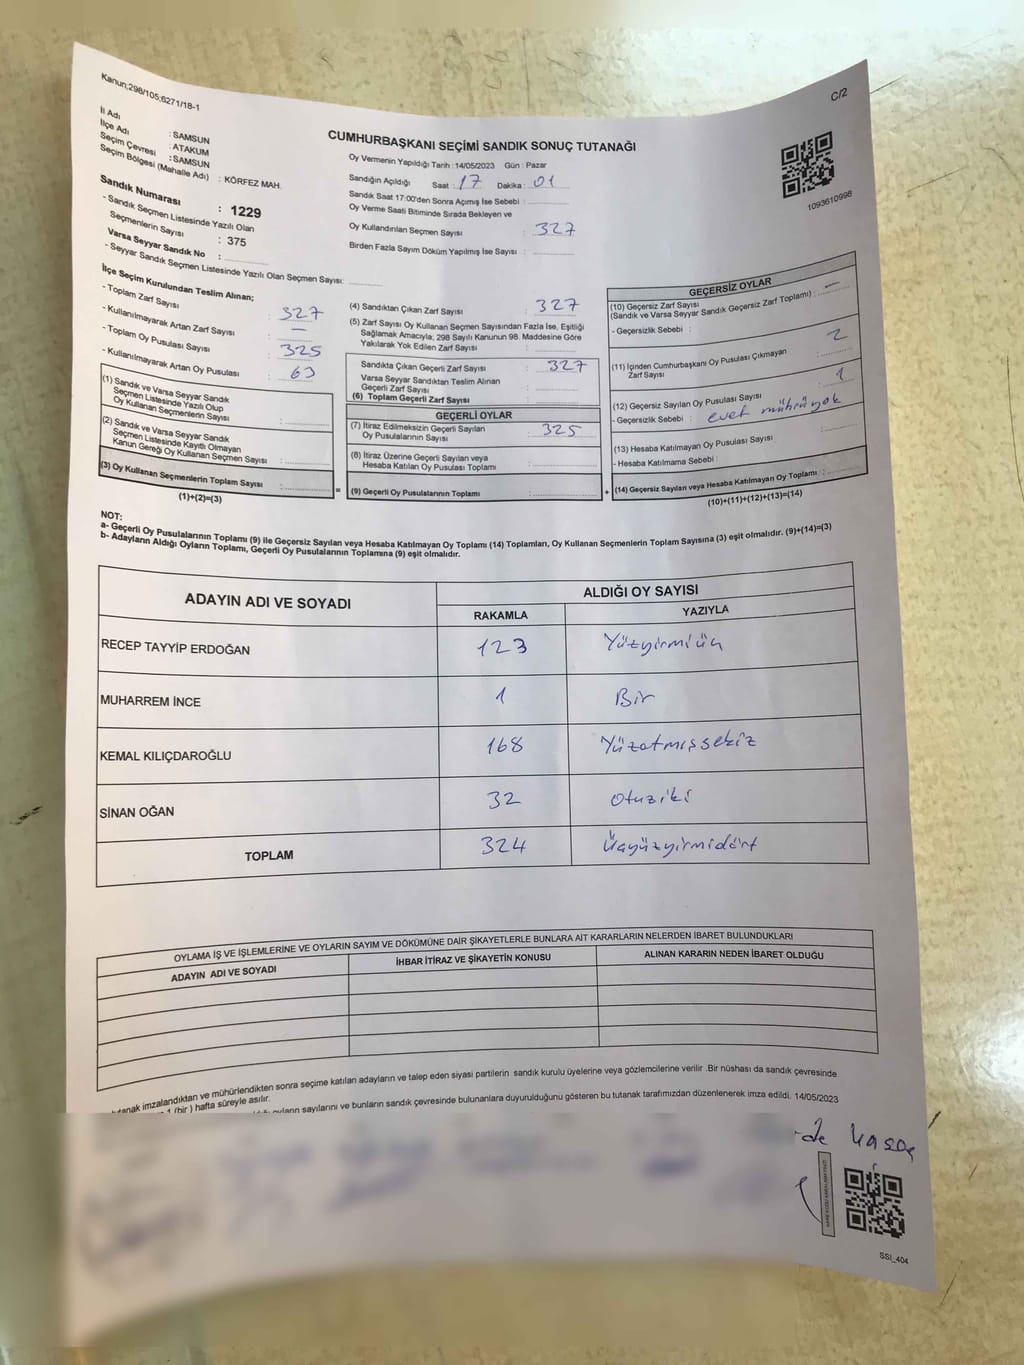 Kanun;298/105;6271/18-1
C/2
İl Adı : SAMSUN
İlçe Adı : ATAKUM
Seçim Çevresi : SAMSUN
Seçim Bölgesi (Mahalle Adı) : KÖRFEZ MAH.
Sandık Numarası : 1229
- Sandık Seçmen Listesinde Yazılı Olan
Seçmenlerin Sayısı : 375
Varsa Seyyar Sandık No :
- Seyyar Sandık Seçmen Listesinde Yazılı Olan Seçmen Sayısı:
CUMHURBAŞKANI SEÇİMİ SANDIK SONUÇ TUTANAĞI
Oy Vermenin Yapıldığı Tarih : 14/05/2023 Gün : Pazar
Sandığın Açıldığı Saat : 17 Dakika : 01
Sandık Saat 17:00'den Sonra Açımış İse Sebebi :
Oy Verme Saati Bitiminde Sırada Bekleyen ve
Oy Kullandırılan Seçmen Sayısı : 327
Birden Fazla Sayım Döküm Yapılmış İse Sayısı :
1093610998
İlçe Seçim Kurulundan Teslim Alınan;
- Toplam Zarf Sayısı : 327
- Kullanılmayarak Artan Zarf Sayısı : —
- Toplam Oy Pusulası Sayısı : 325
- Kullanılmayarak Artan Oy Pusulası : 63
(1) Sandık ve Varsa Seyyar Sandık
Seçmen Listesinde Yazılı Olup
Oy Kullanan Seçmenlerin Sayısı :
(2) Sandık ve Varsa Seyyar Sandık
Seçmen Listesinde Kayıtlı Olmayan
Kanun Gereği Oy Kullanan Seçmen Sayısı :
(3) Oy Kullanan Seçmenlerin Toplam Sayısı :
(1)+(2)=(3)
(4) Sandıktan Çıkan Zarf Sayısı : 327
(5) Zarf Sayısı Oy Kullanan Seçmen Sayısından Fazla İse, Eşitliği
Sağlamak Amacıyla; 298 Sayılı Kanunun 98. Maddesine Göre
Yakılarak Yok Edilen Zarf Sayısı :
Sandıkta Çıkan Geçerli Zarf Sayısı : 327
Varsa Seyyar Sandıktan Teslim Alınan
Geçerli Zarf Sayısı :
(6) Toplam Geçerli Zarf Sayısı :
GEÇERLİ OYLAR
(7) İtiraz Edilmeksizin Geçerli Sayılan
Oy Pusulalarının Sayısı : 325
(8) İtiraz Üzerine Geçerli Sayılan veya
Hesaba Katılan Oy Pusulası Toplamı :
= (9) Geçerli Oy Pusulalarının Toplamı :
GEÇERSİZ OYLAR
(10) Geçersiz Zarf Sayısı
(Sandık ve Varsa Seyyar Sandık Geçersiz Zarf Toplamı) : —
- Geçersizlik Sebebi :
(11) İçinden Cumhurbaşkanı Oy Pusulası Çıkmayan
Zarf Sayısı : 2
(12) Geçersiz Sayılan Oy Pusulası Sayısı : 1
- Geçersizlik Sebebi : evet mührü yok
(13) Hesaba Katılmayan Oy Pusulası Sayısı :
- Hesaba Katılmama Sebebi :
+ (14) Geçersiz Sayılan veya Hesaba Katılmayan Oy Toplamı :
(10)+(11)+(12)+(13)=(14)
NOT:
a- Geçerli Oy Pusulalarının Toplamı (9) ile Geçersiz Sayılan veya Hesaba Katılmayan Oy Toplamı (14) Toplamları, Oy Kullanan Seçmenlerin Toplam Sayısına (3) eşit olmalıdır. (9)+(14)=(3)
b- Adayların Aldığı Oyların Toplamı, Geçerli Oy Pusulalarının Toplamına (9) eşit olmalıdır.
ADAYIN ADI VE SOYADI
ALDIĞI OY SAYISI
RAKAMLA YAZIYLA
RECEP TAYYİP ERDOĞAN 123 Yüzyirmiüç
MUHARREM İNCE 1 Bir
KEMAL KILIÇDAROĞLU 168 Yüzatmışsekiz
SİNAN OĞAN 32 Otuziki
TOPLAM 324 Üçyüzyirmidört
OYLAMA İŞ VE İŞLEMLERİNE VE OYLARIN SAYIM VE DÖKÜMÜNE DAİR ŞİKAYETLERLE BUNLARA AİT KARARLARIN NELERDEN İBARET BULUNDUKLARI
ADAYIN ADI VE SOYADI İHBAR İTİRAZ VE ŞİKAYETİN KONUSU ALINAN KARARIN NEDEN İBARET OLDUĞU
tutanak imzalandıktan ve mühürlendikten sonra seçime katılan adayların ve talep eden siyasi partilerin sandık kurulu üyelerine veya gözlemcilerine verilir .Bir nüshası da sandık çevresinde
1 (bir ) hafta süreyle asılır.
oyların sayılarını ve bunların sandık çevresinde bulunanlara duyurulduğunu gösteren bu tutanak tarafımızdan düzenlenerek imza edildi. 14/05/2023
SSİ_404